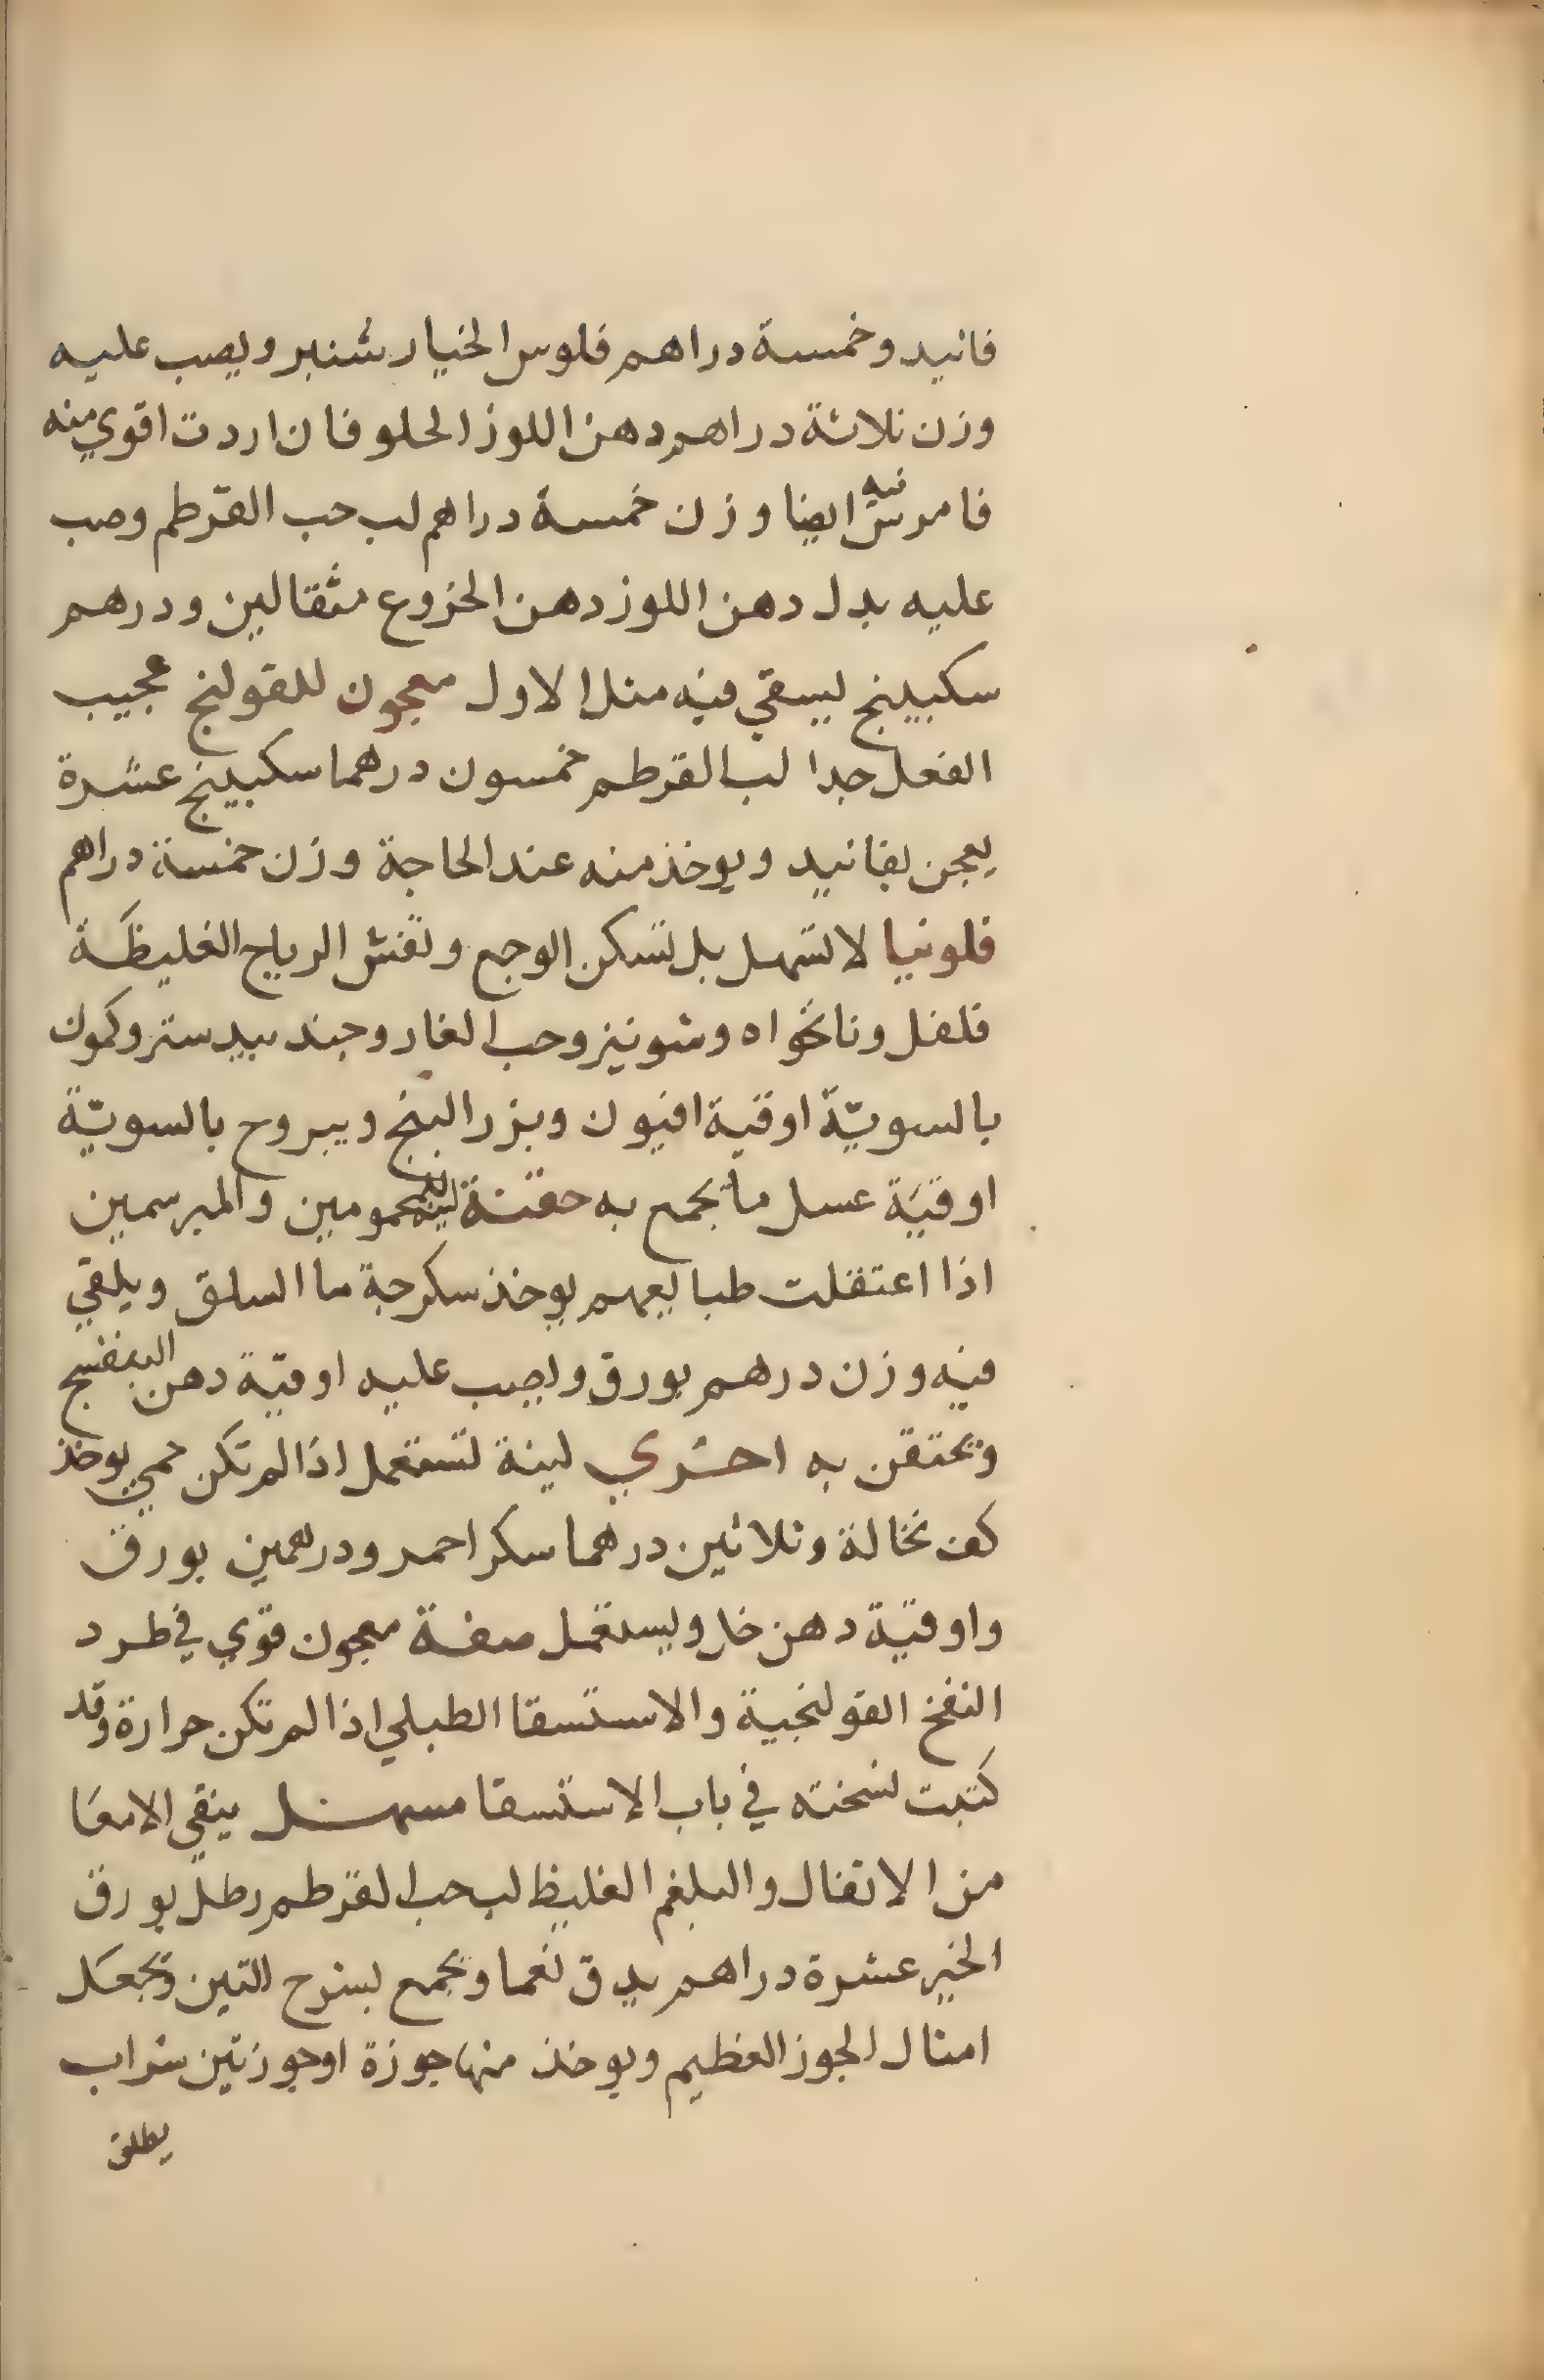 فانيد وخمسة دراهم فلوس الخيار شنبر ويصب عليه
وزن ثلاثة دراهم دهن اللوز الحلو فان اردت اقوي منه
فامرس فيه ايضا وزن خمسة دراهم لب حب القرطم وصب
عليه بدل دهن اللوز دهن الخزوع مثقالين ودرهم
سكبينج ليسقي فيه مثل الاول معجون للقولنج عجيب
الفعل جدا لب القرطم خمسون درهما سكبينج عشرة
يعجن بفانيد ويوخذ منه عند الحاجة وزن خمسة دراهم
فلونيا لا تسهل بل تسكن الوجع وتفش الرياح الغليظة
فلفل ونانخواه وشونيز وحب الغار وجند بيدستر وكمون
بالسويّة اوقية افيون وبزر البنج ويبروح بالسويّة
اوقيَة عسل ما تجمع به حقنة لينة للمحمومين والمبرسمين
اذا اعتقلت طبايعهم يوخذ سكرجة ما السلق ويلقي
فيه وزن درهم بورق ويصب عليه اوقيّة دهن البنفسج
ويحتقن به اخري لينة تستعمل اذا لم تكن حمي يوخذ
كف نخالة وثلاثين درهما سكر احمر ودرهمين بورق
واوقيّة دهن خل ويستعمل صفة معجون قوي في طرد
النفخ القولنجية والاستسقا الطبلي اذا لم تكن حرارة وقد
كتبت نسخته في باب الاستسقا مسهل ينقي الامعَا
من الاثفال والبلغم الغليظ لب حب القرطم رطل بورق
الخبز عشرة دراهم يدق نعما ويجمع بسرح التين ويجعَل
امثال الجوز العظيم ويوخذ منها جوزة او جوزتين شراب
يطلق